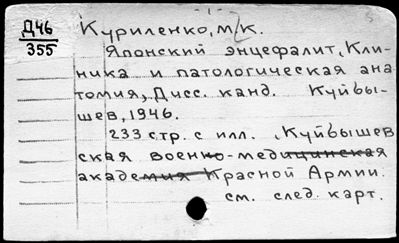 Д46
355
Куриленко, М. К.
Японский энцефалит, Кли-
ника и патологическая ана
томия, Дисс. канд. Куйбы-
шев, 1946.
233 стр. с илл. , Куйбышев
ская военно-медицинская
академия Красной Армии.
см. след. карт.